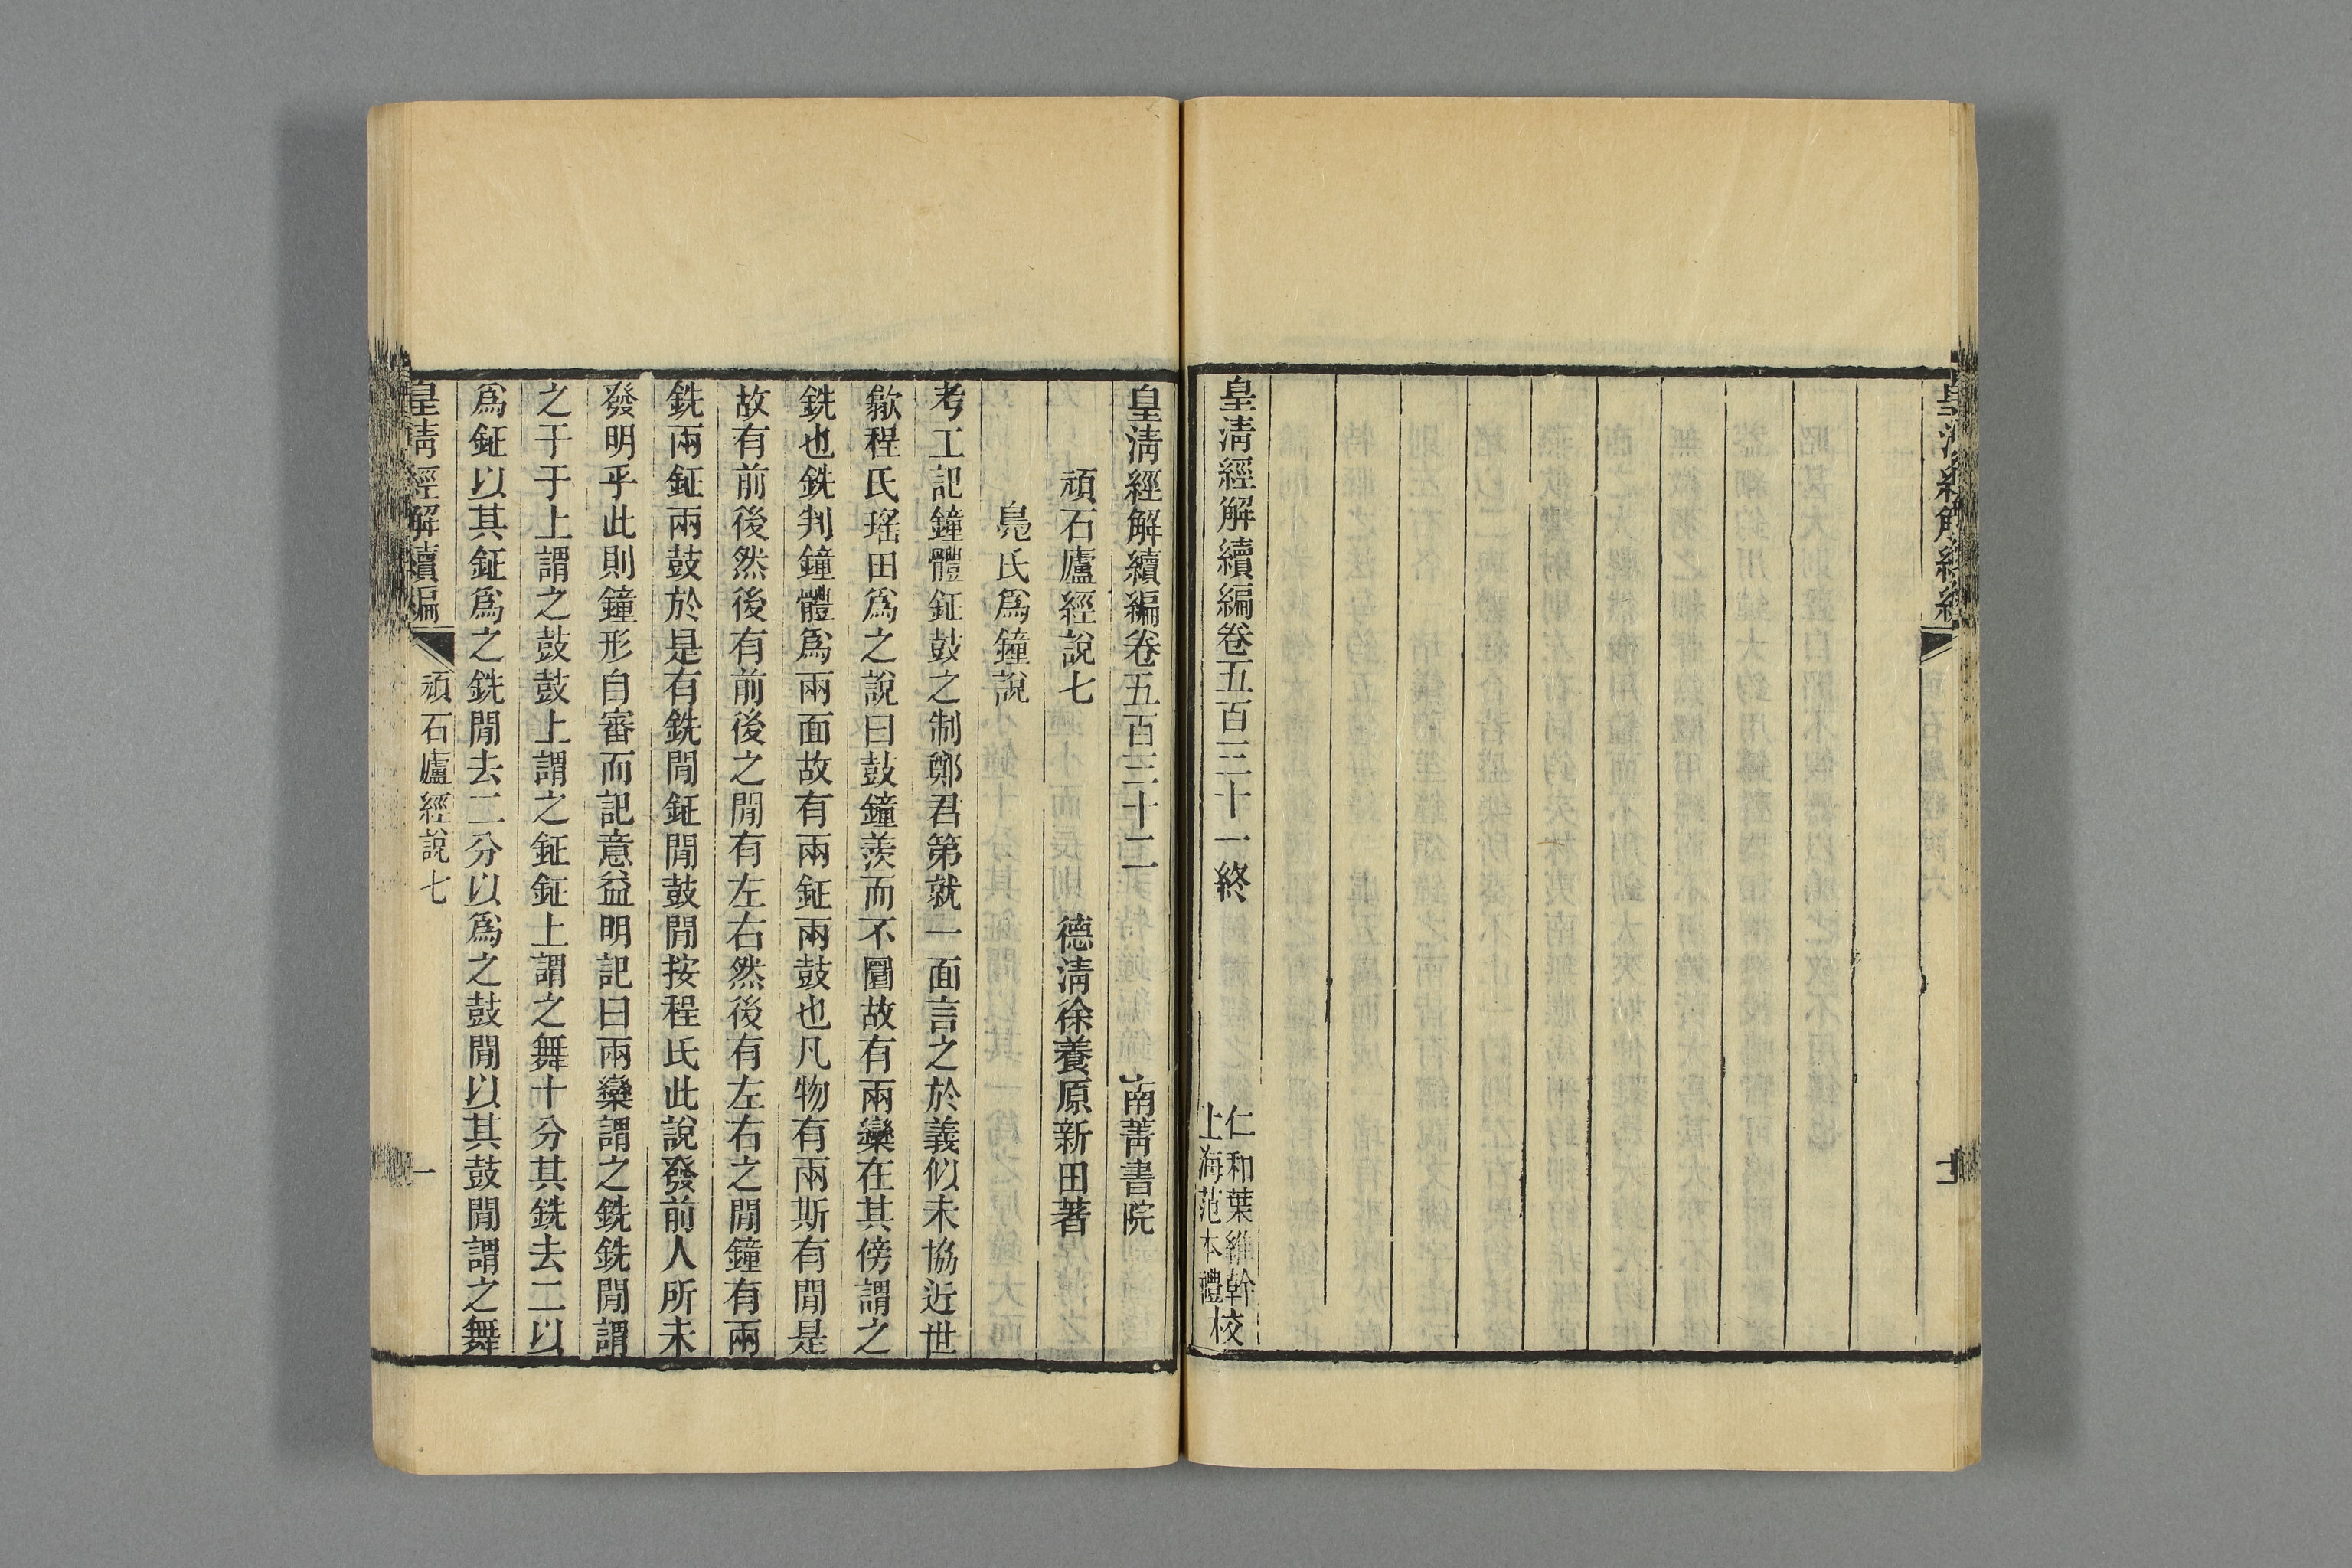 皇清經解續編卷五百三十一終
仁和葉維幹
上海范本禮校
皇清經解續編卷五百三十二
南菁書院
頑石廬經說七
德清徐養原新田著
鳧氏爲鐘說
考工記鐘體鉦鼓之制鄭君第就一面言之於義似未協近世
歙程氏瑤田爲之說曰鼓鐘羨而不圜故有兩欒在其傍謂之
銑也銑判鐘體爲兩面故有兩鉦兩鼓也凡物有兩斯有閒是
故有前後然後有前後之閒有左右然後有左右之閒鐘有兩
銑兩鉦兩鼓於是有銑閒鉦閒鼓閒按程氏此說發前人所未
發明乎此則鐘形自審而記意益明記曰兩欒謂之銑銑閒謂
之于于上謂之鼓鼓上謂之鉦鉦上謂之舞十分其銑去二以
爲鉦以其鉦爲之銑閒去二分以爲之鼓閒以其鼓閒謂之舞
皇清經解續編
頑石廬經說七
一